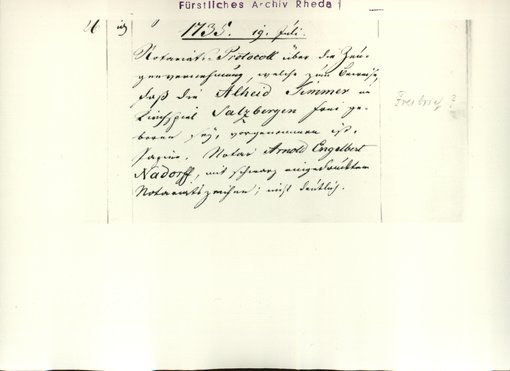 Fürstliches Archiv Rheda
1735. 19. Juli.
Notariats-Protocoll über die Zeu-
genvernehmung, welche zum Beweise,
daß die Alheid Timmer in
Kirchspiel Salzbergen frei ge-
boren sey, vorgenommen ist.
Papier. Notar Arnold Engelbert
Nadorff, mit schwarz eingedrucktem
Notariatszeichen; nicht deutlich.
Freibrief?